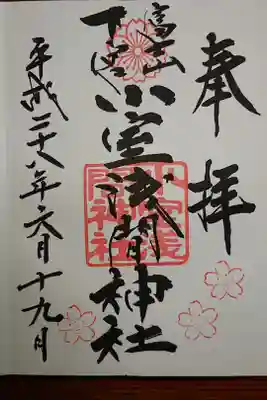 奉拝
富士山
下宮
小室浅間神社
平成二十八年六月十九日